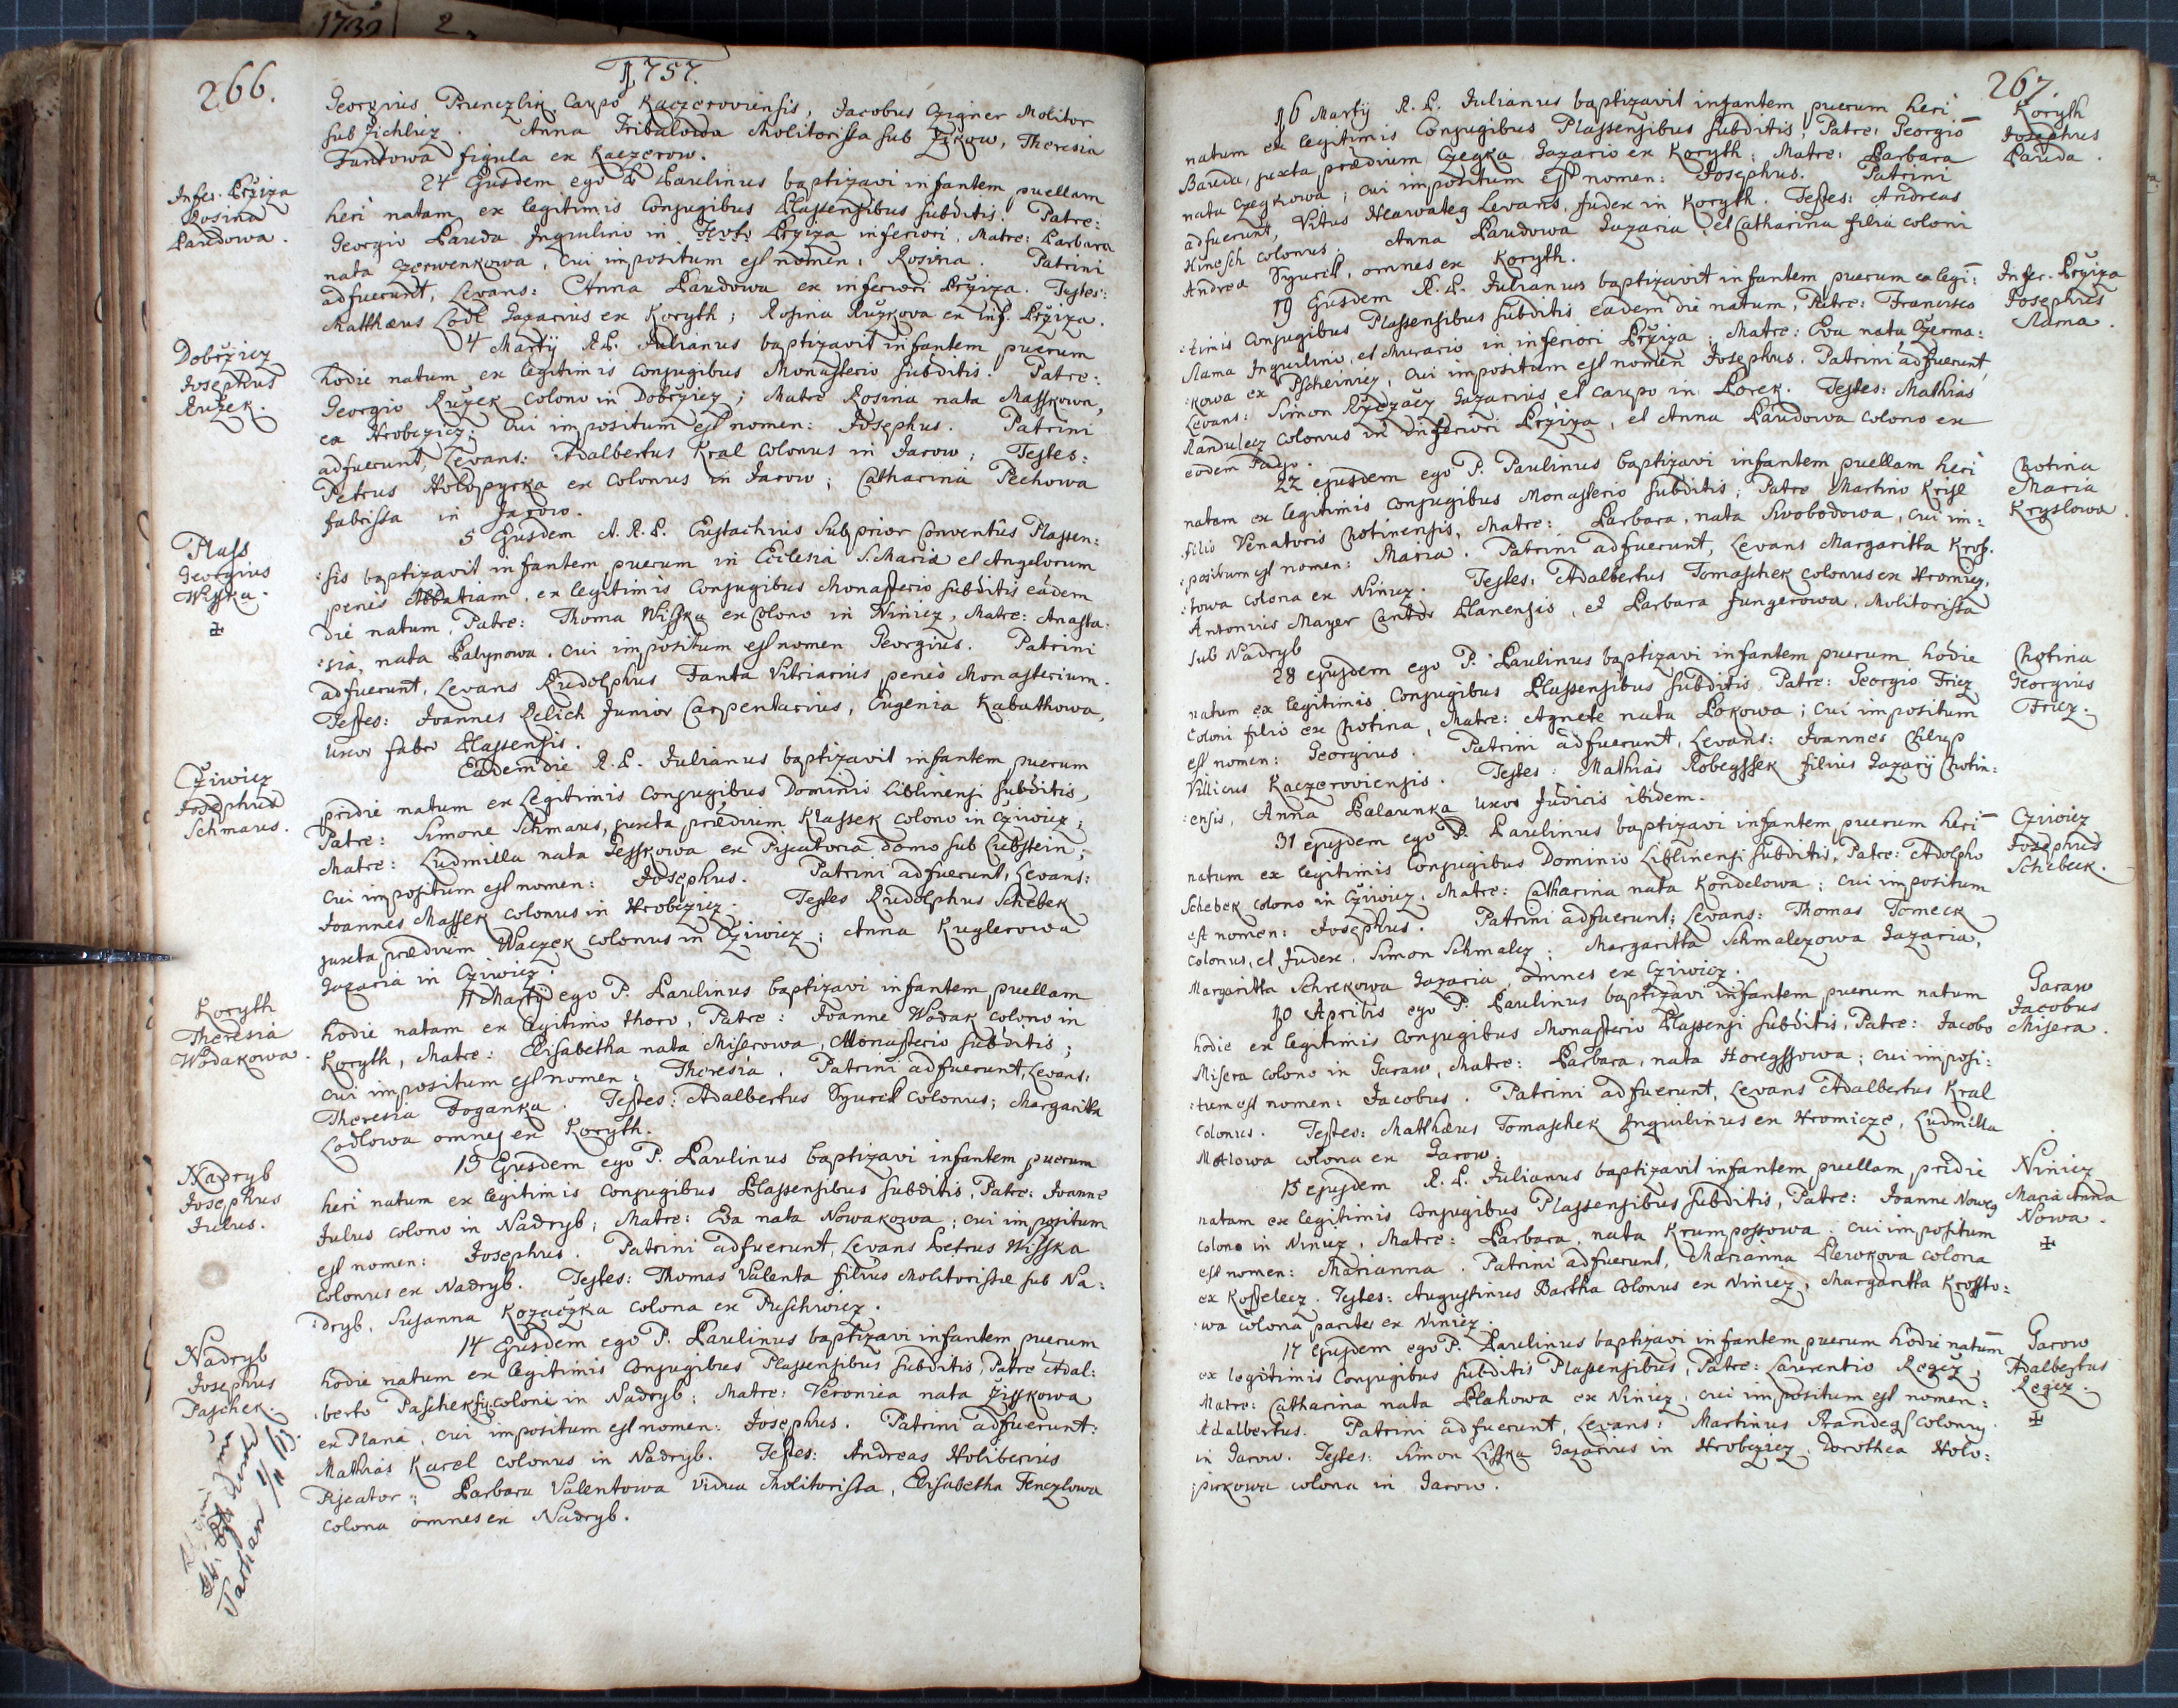 1732 2
266.
1757.
Georgius Prunczlik Caupo Kaczeroviensis, Jacobus Czigner Molitor
sub Zichlicz. Anna Tribalowa Molitorissa sub Zikow, Theresia
Fantowa figula ex Kaczerow.
Infer. Bržiza
Rosina
Baudowa.
24 Ejusdem ego P. Paulinus baptizavi infantem puellam
heri natam ex legitimis Conjugibus Plassensibus subditis. Patre:
Georgio Bauda Inquilino in Bržiza inferiori, Matre: Barbara
nata Czerwenkowa, cui impositum est nomen: Rosina. Patrini
adfuerunt, Levans: Anna Baudowa ex inferiori Bržiza. Testes:
Matthæus Lodl Gazarius ex Koryth; Rosina Ružkova ex inf. Bržiza.
Dobržicz
Josephus
Ružek.
4 Martij R.P. Julianus baptizavit infantem puerum
hodie natum ex legitimis conjugibus Monasterio subditis. Patre:
Georgio Ružek colono in Dobržicz; Matre Rosina nata Masskowa,
ex Hrobczicz; Cui impositum est nomen: Josephus. Patrini
adfuerunt, Levans: Adalbertus Kral Colonus in Jarow; Testes:
Petrus Holopyrka ex Colonus in Jarow; Catharina Pechowa
fabrissa in Jarow.
Plass
Georgius
Wisska.
✠
5 Ejusdem A.R.P. Eustachius Subprior Conventûs Plassen:
:sis baptizavit infantem puerum in Ecclesia S. Maria et Angelorum
penes Abbatiam, ex legitimis Conjugibus Monasterio subditis eâdem
die natum, Patre: Thoma Wisska ex Colono in Niniez, Matre: Anasta:
:sia, nata Balynowa. cui impositum est nomen Georgius. Patrini
adfuerunt, Levans Rudolphus Fanta Vitriarius penes Monasterium.
Testes: Joannes Relich Junior Carpentarius, Eugenia Kabathowa,
uxor fabri Plassensis.
Cžiwicz
Josephus
Schmaus.
Eâdem die R.P. Julianus baptizavit infantem puerum
pridie natum ex Legitimis Conjugibus Dominio Liblinensi subditis,
Patre: Simone Schmaus, juxta prædium Klassek colono in Cžiwicz;
Matre: Ludmilla nata Jesskowa ex Piscatoria domo sub Libstein;
cui impositum est nomen: Josephus. Patrini adfuerunt, Levans:
Joannes Massek colonus in Hrobczicz. Testes Rudolphus Schebek
juxta prædium Waczek colonus in Cžiwicz; Anna Kuglerowa
Gazaria in Cžiwicz.
Koryth
Theresia
Wodakowa.
11 Martij ego P. Paulinus baptizavi infantem puellam
hodie natam ex legitimo thoro, Patre: Joanne Wodak colono in
Koryth, Matre: Elisabetha nata Miserowa, Monasterio subditis;
cui impositum est nomen: Theresia. Patrini adfuerunt, Levans:
Theresia Doganka. Testes: Adalbertus Sycucl colonus; Margaritta
Lodlowa omnes ex Koryth.
Nadryb
Josephus
Julius.
13 Ejusdem ego P. Paulinus baptizavi infantem puerum
heri natum ex legitimis conjugibus Plassensibus subditis, Patre: Joanne
Julius colono in Nadryb; Matre: Eva nata Nowakowa; cui impositum
est nomen: Josephus. Patrini adfuerunt, Levans Petrus Wisska
colonus ex Nadryb. Testes: Thomas Valenta filius Molitorissæ sub Na:
:dryb, Susanna Kozaczka colona ex Puschwicz.
Nadryb
Josephus
Paschek.
14 Ejusdem ego P. Paulinus baptizavi infantem puerum
hodie natum ex legitimis Conjugibus Plassensibus subditis, Patre Adal:
:berto Paschek coloni in Nadryb; Matre: Veronica nata Zisskowa
ex Plana, cui impositum est nomen: Josephus. Patrini adfuerunt:
Mathias Karel colonus in Nadryb. Testes: Andreas Holibercius
Piscator; Barbara Valentowa vidua Molitorissa, Elisabetha Fenczlowa
colona omnes ex Nadryb.
267.
Koryth
Josephus
Bauda.
16 Martij R.P. Julianus baptizavit infantem puerum heri
natum ex legitimis Conjugibus Plassensibus subditis, Patre: Georgio
Bauda, juxta prædium Czegka Gazario ex Koryth; Matre: Barbara
nata Czegkowa; cui impositum est nomen: Josephus. Patrini
adfuerunt, Vitus Hlawateg Levans, Judex in Koryth. Testes: Andreas
Hinesch colonus: Anna Baudowa Gazaria, et Catharina filia coloni
Andrea Sycucl, omnes ex Koryth.
Infer. Bržiza
Josephus
Slama.
19 Ejusdem R.P. Julianus baptizavit infantem puerum ex legi:
:timis Conjugibus Plassensibus subditis eadem die natum, Patre: Francisco
Slama Inquilino, et Murario in inferiori Bržiza, Matre: Eva nata Czerma:
:kowa ex Pscheinicz, cui impositum est nomen Josephus. Patrini adfuerunt,
Levans: Simon Ržezacz Gazarius et caupo in Borek. Testes: Mathias
Randulecz colonus in inferiori Bržiza, et Anna Baudowa colono ex
eodem Pago.
Chotina
Maria
Kryslowa.
22 ejusdem ego P. Paulinus baptizavi infantem puellam heri
natam ex legitimis conjugibus Monasterio subditis; Patre Martino Krisl
filio Venatoris Chotinensis, Matre: Barbara, nata Swobodowa, cui im:
:positum est nomen: Maria. Patrini adfuerunt, Levans Margaritta Kros.
:towa colona ex Niniez. Testes: Adalbertus Tomaschek colonus ex Hromicz,
Antonius Mayer Cantor Planensis, et Barbara Jungerowa, Molitorissa
sub Nadryb
Chotina
Georgius
Fricz.
28 ejusdem ego P. Paulinus baptizavi infantem puerum hodie
natum ex legitimis conjugibus Plassensibus subditis, Patre: Georgio Fricz
coloni filio ex Chotina, Matre: Agnete nata Bokowa; cui impositum
est nomen: Georgius. Patrini adfuerunt, Levans: Joannes Chlup
Villicus Kaczeroviensis. Testes: Mathias Robegssek filius Gazarij Chotin:
:ensis, Anna Palaunka uxor Judicis ibidem.
Cziwicz
Josephus
Schebeck.
31 ejusdem ego P. Paulinus baptizavi infantem puerum heri
natum ex legitimis Conjugibus Dominio Liblinensi subditis, Patre: Adolpho
Schebek colono in Cžiwicz, Matre: Catharina nata Kondelowa; cui impositum
est nomen: Josephus. Patrini adfuerunt; Levans: Thomas Tomeck
colonus, et Judex, Simon Schmalcz; Margaritta Schmalczowa Gazaria,
Margaritta Schrekowa Gazaria, omnes ex Cziwicz.
Garaw
Jacobus
Misera.
10 Aprilis ego P. Paulinus baptizavi infantem puerum natum
hodie ex legitimis Conjugibus Monasterio Plassensi subditis, Patre: Jacobo
Misera colono in Garaw, Matre: Barbara, nata Horegssowa; cui imposi:
:tum est nomen: Jacobus. Patrini adfuerunt, Levans Adalbertus Kral
Colonus. Testes: Matthæus Tomaschek Inquilinus ex Hromicze, Ludmilla
Motlowa colona ex Jarow.
Niniez
Maria Anna
Nowa.
✠
15 ejusdem R.P. Julianus baptizavit infantem puellam pridie
natam ex legitimis Conjugibus Plassensibus subditis, Patre: Joanne Noweg
colono in Niniez, Matre: Barbara, nata Krumpossowa; cui impositum
est nomen: Marianna. Patrini adfuerunt, Marianna Plewkowa colona
ex Kosselecz. Testes: Augustinus Bartha Colonus ex Niniez, Margaritta Krossto:
:wa colona pariter ex Niniez.
Jarow
Adalbertus
Regcz.
✠
17 ejusdem ego P. Paulinus baptizavi infantem puerum hodie natum
ex legitimis conjugibus subditis Plassensibus, Patre: Laurentio Regcz;
Matre: Catharina nata Plahowa ex Niniez, cui impositum est nomen:
Adalbertus. Patrini adfuerunt, Levans: Martinus Brandegs colonus
in Jarow. Testes: Simon Lisska Gazarius in Hrobczicz, Dorothea Holo:
:pirkowa colona in Jarow.